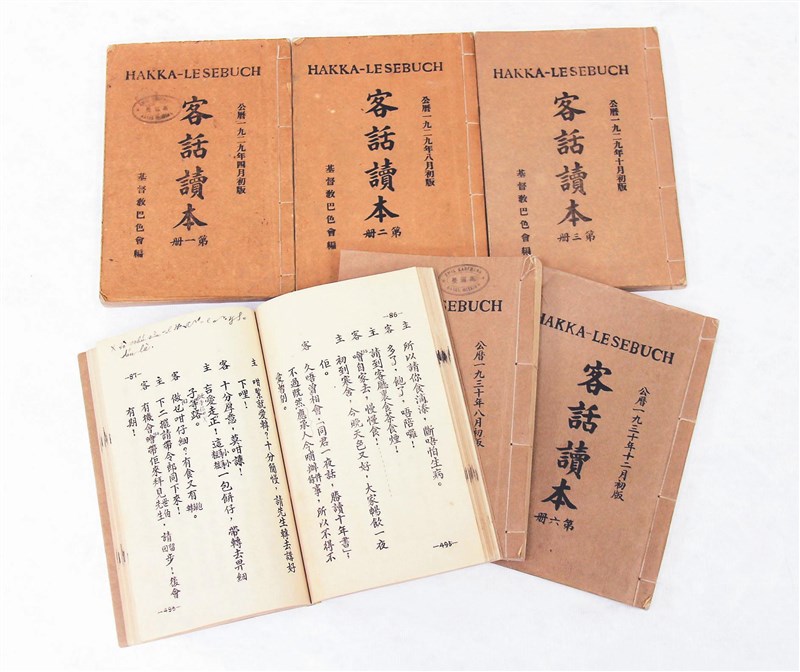 HAKKA-LESEBUCH
客話讀本
第一册
公曆一九二九年四月初版
基督教巴色會編
HAKKA-LESEBUCH
客話讀本
第二册
公曆一九二九年八月初版
基督教巴色會編
HAKKA-LESEBUCH
客話讀本
第三册
公曆一九二九年十月初版
基督教巴色會編
SEBUCH
公曆一九三十年八月初版
HAKKA-LESEBUCH
客話讀本
第六册
公曆一九三十年十二月初版
—86—
主 所以請你食滴添,斷唔怕生病。
客 多了,飽了,唔陪囉!
主 請到客廳裏食茶食煙!
客 噲自家去,慢慢食……
主 初到寒舍,今晚天色又好,大家暢飲一夜
佢。
客 久唔曾相會,「同君一夜話,勝讀十年書」;
不過既然應承人今晡辦件事,所以不得不
愛暫別。
—495—
—87—
主 咁緊就愛轉?十分簡慢,請先生轉去講好
下哩!
客 十分厚意,莫咁謙!
主 言愛走正!這一包餅仔,帶轉去畀細
子等路。
客 做乜咁仔細?有食又有
主 下二擺請帶令郎同下來!
客 有機會噲帶佢來拜見先生,請留步!後會
有期!
—496—